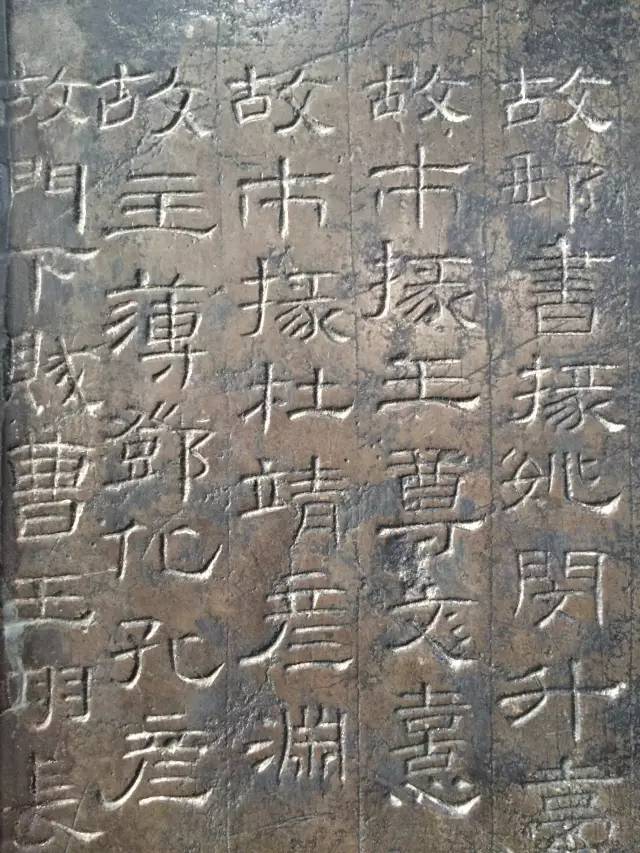 故郵書掾姚閔升臺
故市掾王尊文憙
故市掾杜靖彥淵
故主薄鄧化孔彥
故門下賊曹王翊長